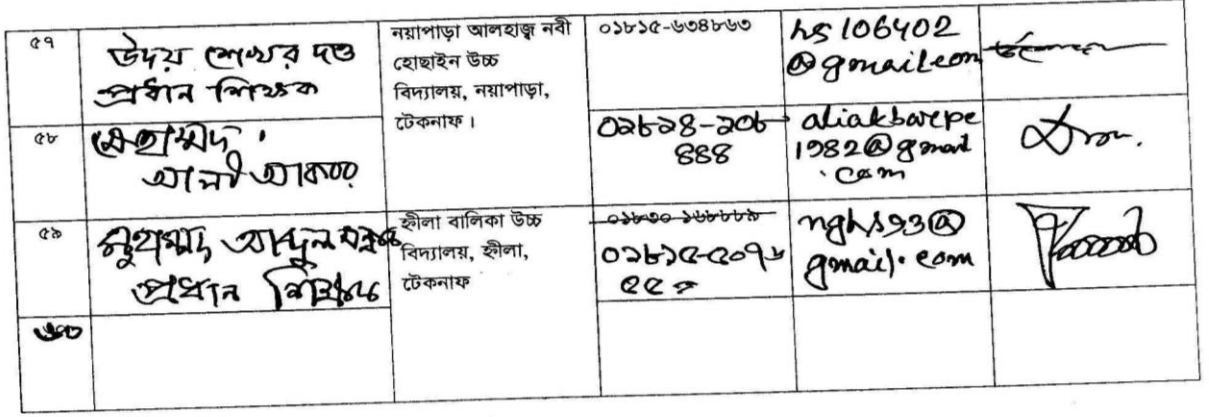 ৫৭
উদয় শেখর দত্ত
প্রধান শিক্ষক
নয়াপাড়া আলহাজ্ব নবী
হোছাইন উচ্চ
বিদ্যালয়, নয়াপাড়া,
টেকনাফ।
০১৮১৫-৬৩৪৮৬৩
hs106402
@gmail.com
৫৮
মোহাম্মদ
আলী আকবর
০১৮১৪-২০৮
৪৪৪
aliakbarepe
1982@gmail
.com
৫৯
মুহাম্মদ আব্দুল
প্রধান শিক্ষক
হ্নীলা বালিকা উচ্চ
বিদ্যালয়, হ্নীলা,
টেকনাফ
০১৮১৫-৫০৭৮
nghs93@
gmail.com
৬০